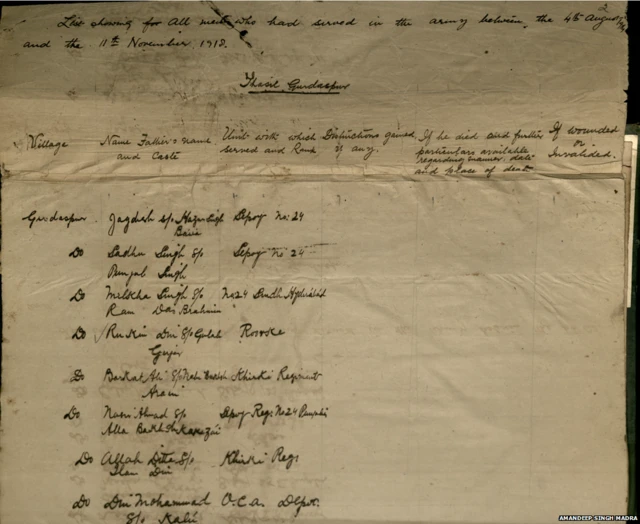 List showing for All men who had served in the army between, the 4th August
and the 11th November 1918.
Thasil Gurdaspur
Village Name Father's name and Caste Unit with which served and Rank Distinctions gained, if any. If he died and further particulars available regarding manner, date and place of death If wounded or Invalided.
Gurdaspur Jagdish s/o Singh Sepoy No: 24
Do Sadhu Singh S/o Sepoy no 24
Punjab Singh
Do Milkha Singh S/o No 24 Sindh
Ram Das Brahmin
Do Din S/o Gulab
Do Barkat Ali S/o Khirki Regiment
Arain
Do S/o Sepoy Reg: No 24 Punjabi
Do Allah Ditta S/o Khirki Reg:
Din
Do Din Mohammad O.C.A. Depot.
S/o
AMANDEEP SINGH MADRA